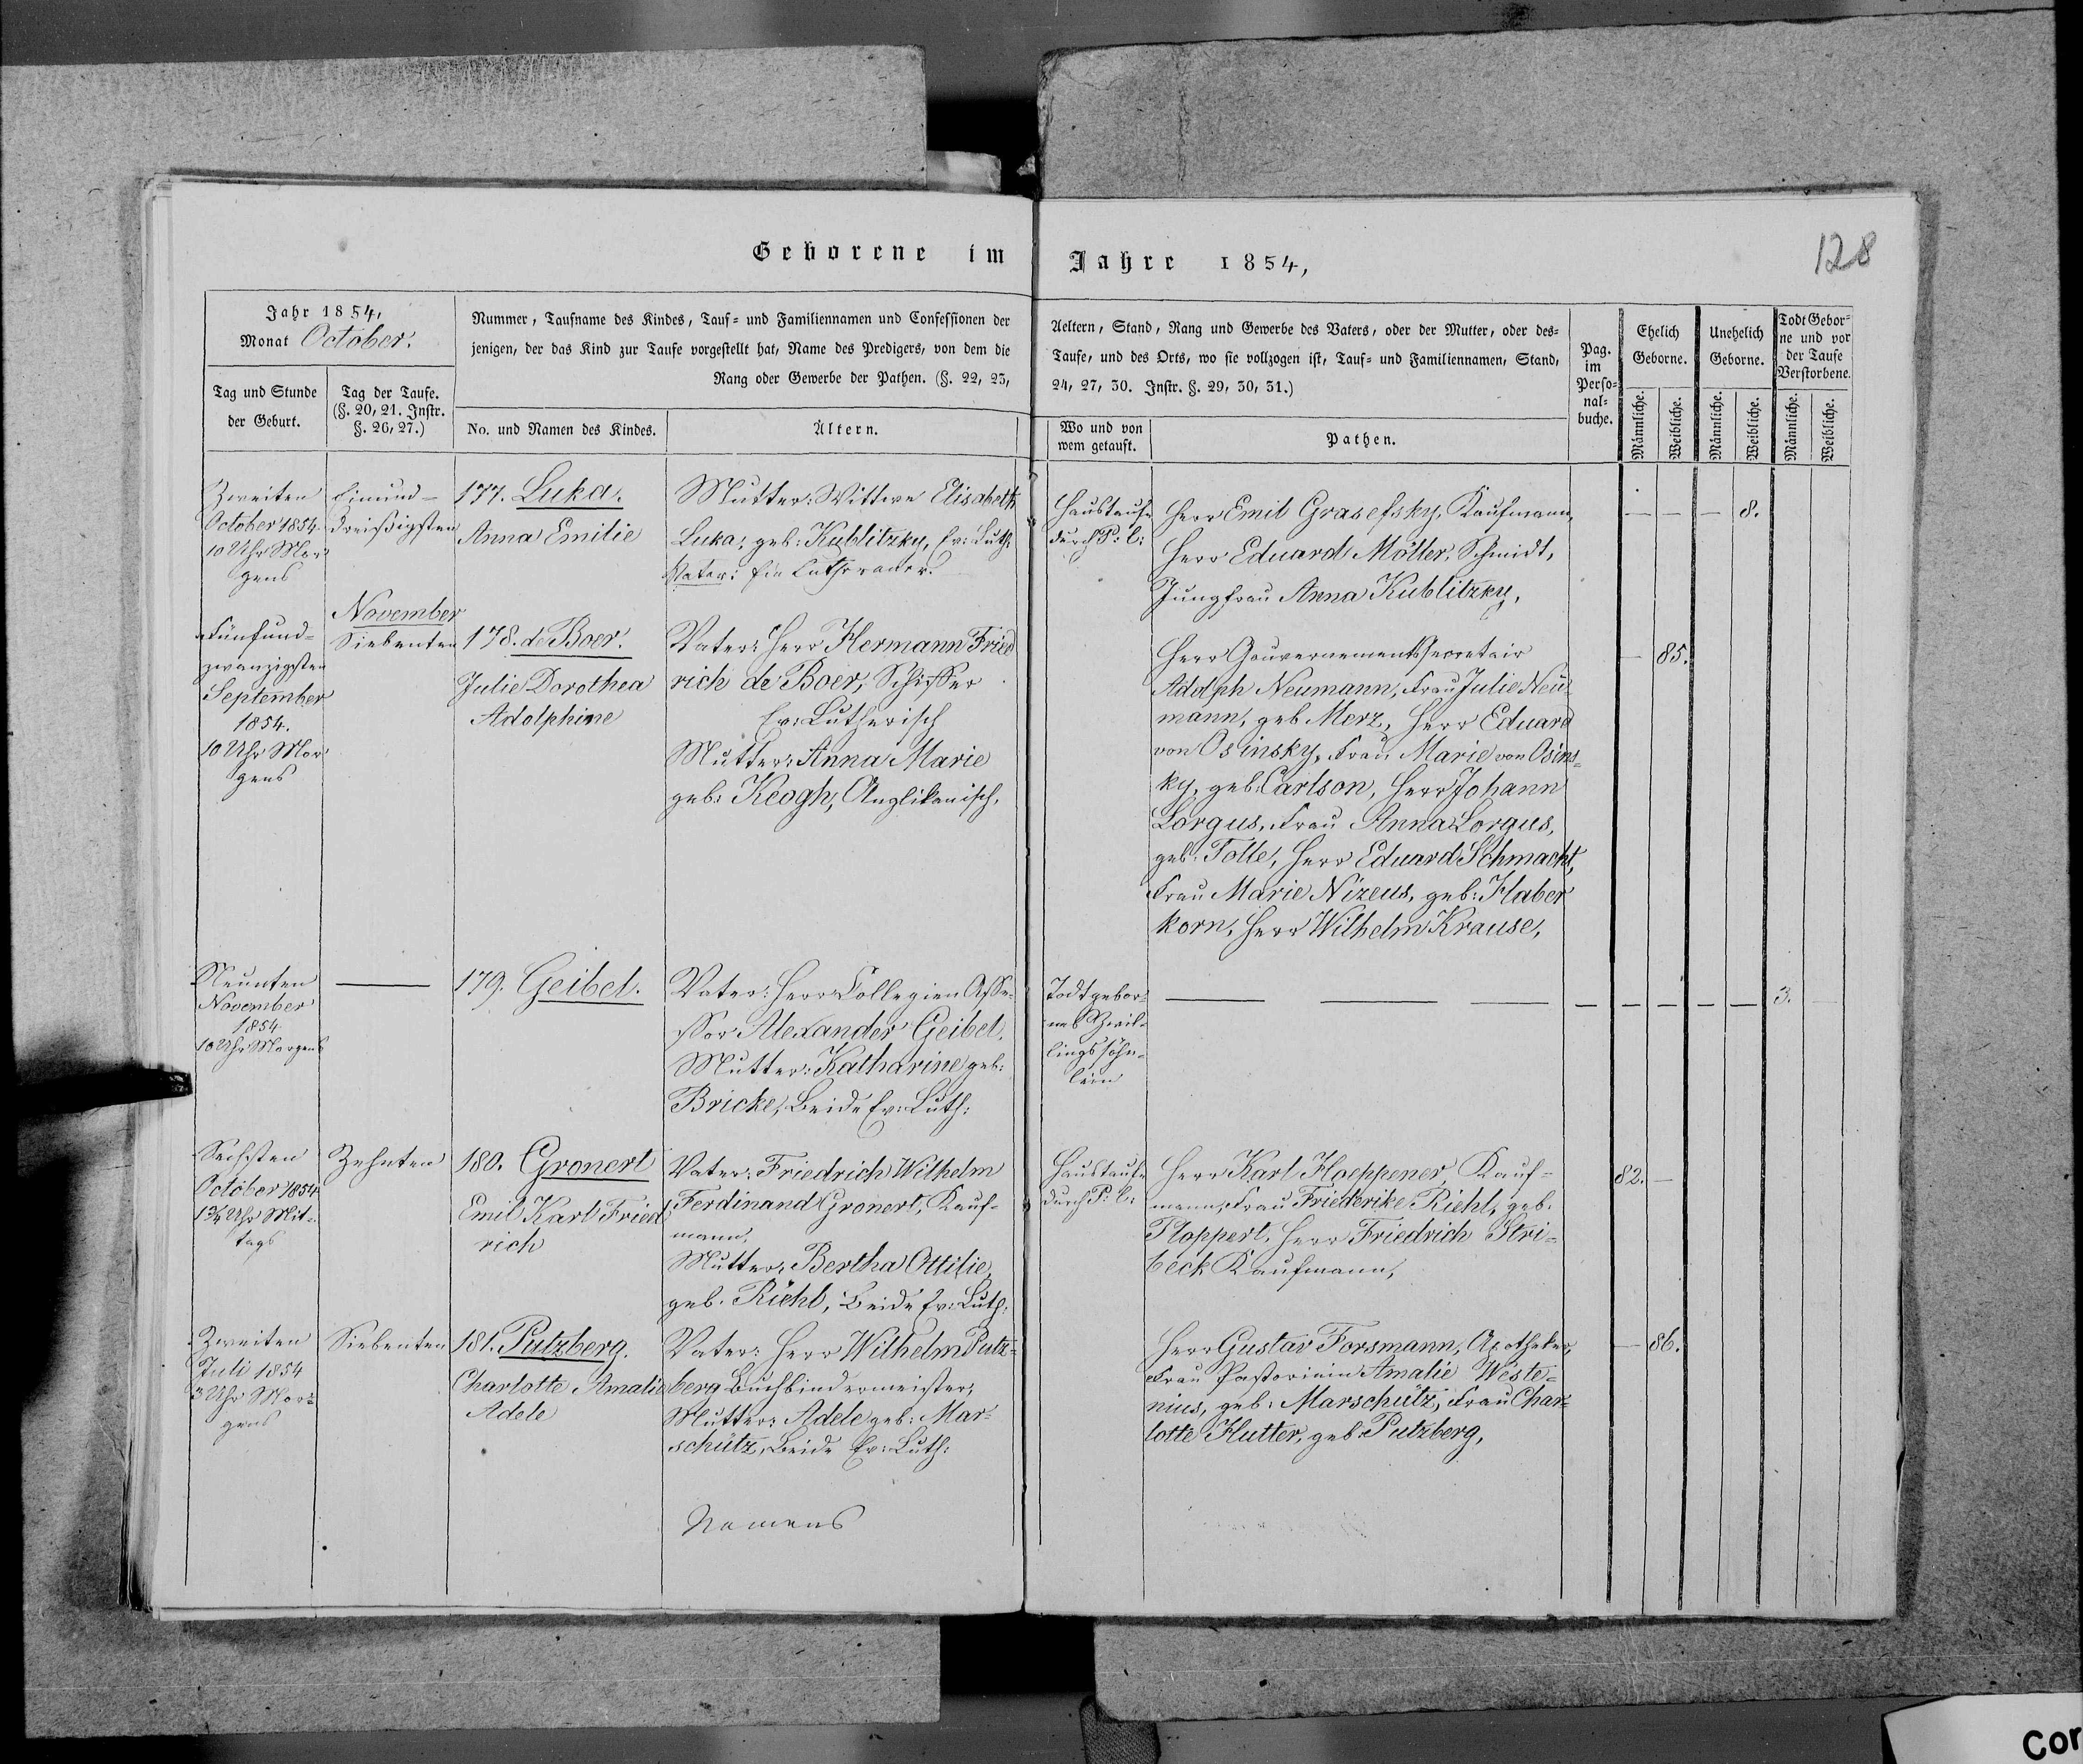 Geborene im Jahre 1854,
128
Jahr 1854,
Monat October.
Tag und Stunde
der Geburt.
Tag der Taufe.
(§. 20, 21. Instr.
§. 26, 27.)
Nummer, Taufname des Kindes, Tauf- und Familiennamen und Confessionen der
jenigen, der das Kind zur Taufe vorgestellt hat, Name des Predigers, von dem die
Rang oder Gewerbe der Pathen. (§. 22, 23,
No. und Namen des Kindes.
Ältern.
Aeltern, Stand, Rang und Gewerbe des Vaters, oder der Mutter, oder des-
Taufe, und des Orts, wo sie vollzogen ist, Tauf- und Familiennamen, Stand,
24, 27, 30. Instr. §. 29, 30, 31.)
Wo und von
wem getauft.
Pathen.
Pag.
im
Perso-
nal-
buche.
Ehelich
Geborne.
Unehelich
Geborne.
Todt Gebor-
ne und vor
der Taufe
Verstorbene.
Männliche.
Weibliche.
Männliche.
Weibliche.
Männliche.
Weibliche.
Zweiten
October 1854.
10 Uhr Mor-
gens
Einund-
dreißigsten
177. Luka.
Anna Emilie
Mutter: Wittwe Elisabeth
Luka, geb: Kublitzky, Ev: Luth:
Vater: Ein Lutheraner.
Haustaufe
durch P: l:
Herr Emil Grasefsky, Kaufmann,
Herr Eduard Möller, Schmidt,
Jungfrau Anna Kublitzky,
8.
Fünfund-
zwanzigsten
September
1854.
10 Uhr Mor-
gens
November
Siebenten
178. de Boer.
Julie Dorothea
Adolphine
Vater: Herr Hermann Fried
rich de Boer, Schiffer
Ev: Lutherisch
Mutter: Anna Marie
geb: Keogh, Anglikanisch,
Herr Gouvernements Secretair
Adolph Neumann, Frau Julie Neu-
mann, geb Merz, Herr Eduard
von Osinsky, Frau Marie von Osins-
ky, geb: Carlson, Herr Johann
Lorgus, Frau Anna Lorgus,
geb: Tolle, Herr Eduard Schmacht,
Frau Marie Nizeus, geb: Haber
korn, Herr Wilhelm Krause,
85.
Neunten
November
1854
10 Uhr Morgens
179. Geibel.
Vater: Herr Collegien Asse-
ssor Alexander Geibel.
Mutter: Katharine geb:
Bricke, Beide Ev: Luth:
Todtgebor-
nes Zwil-
lingssöhn-
lein
3.
Sechsten
October 1854
1¾ Uhr Mit-
tags
Zehnten
180. Gronert
Emil Karl Fried
rich
Vater: Friedrich Wilhelm
Ferdinand Gronert, Kauf-
mann,
Mutter: Bertha Ottilie,
geb. Riehl, Beide Ev: Luth:
Haustaufe
durch P: l:
Herr Karl Hoeppener, Kauf-
mann, Frau Friederike Riehl, geb.
Ploppert, Herr Friedrich Stri-
beck Kaufmann,
82.
Zweiten
Juli 1854
3 Uhr Mor-
gens
Siebenten
181. Putzberg.
Charlotte Amalie
Adele
Vater: Herr Wilhelm Putz-
berg Buchbindermeister,
Mutter: Adele geb: Mar-
schütz, Beide Ev: Luth:
Herr Gustav Forsmann, Apotheker,
Frau Pastorinn Amalie Weste-
nius, geb: Marschütz, Frau Char-
lotte Hutter, geb: Putzberg,
86.
Namens
Cor